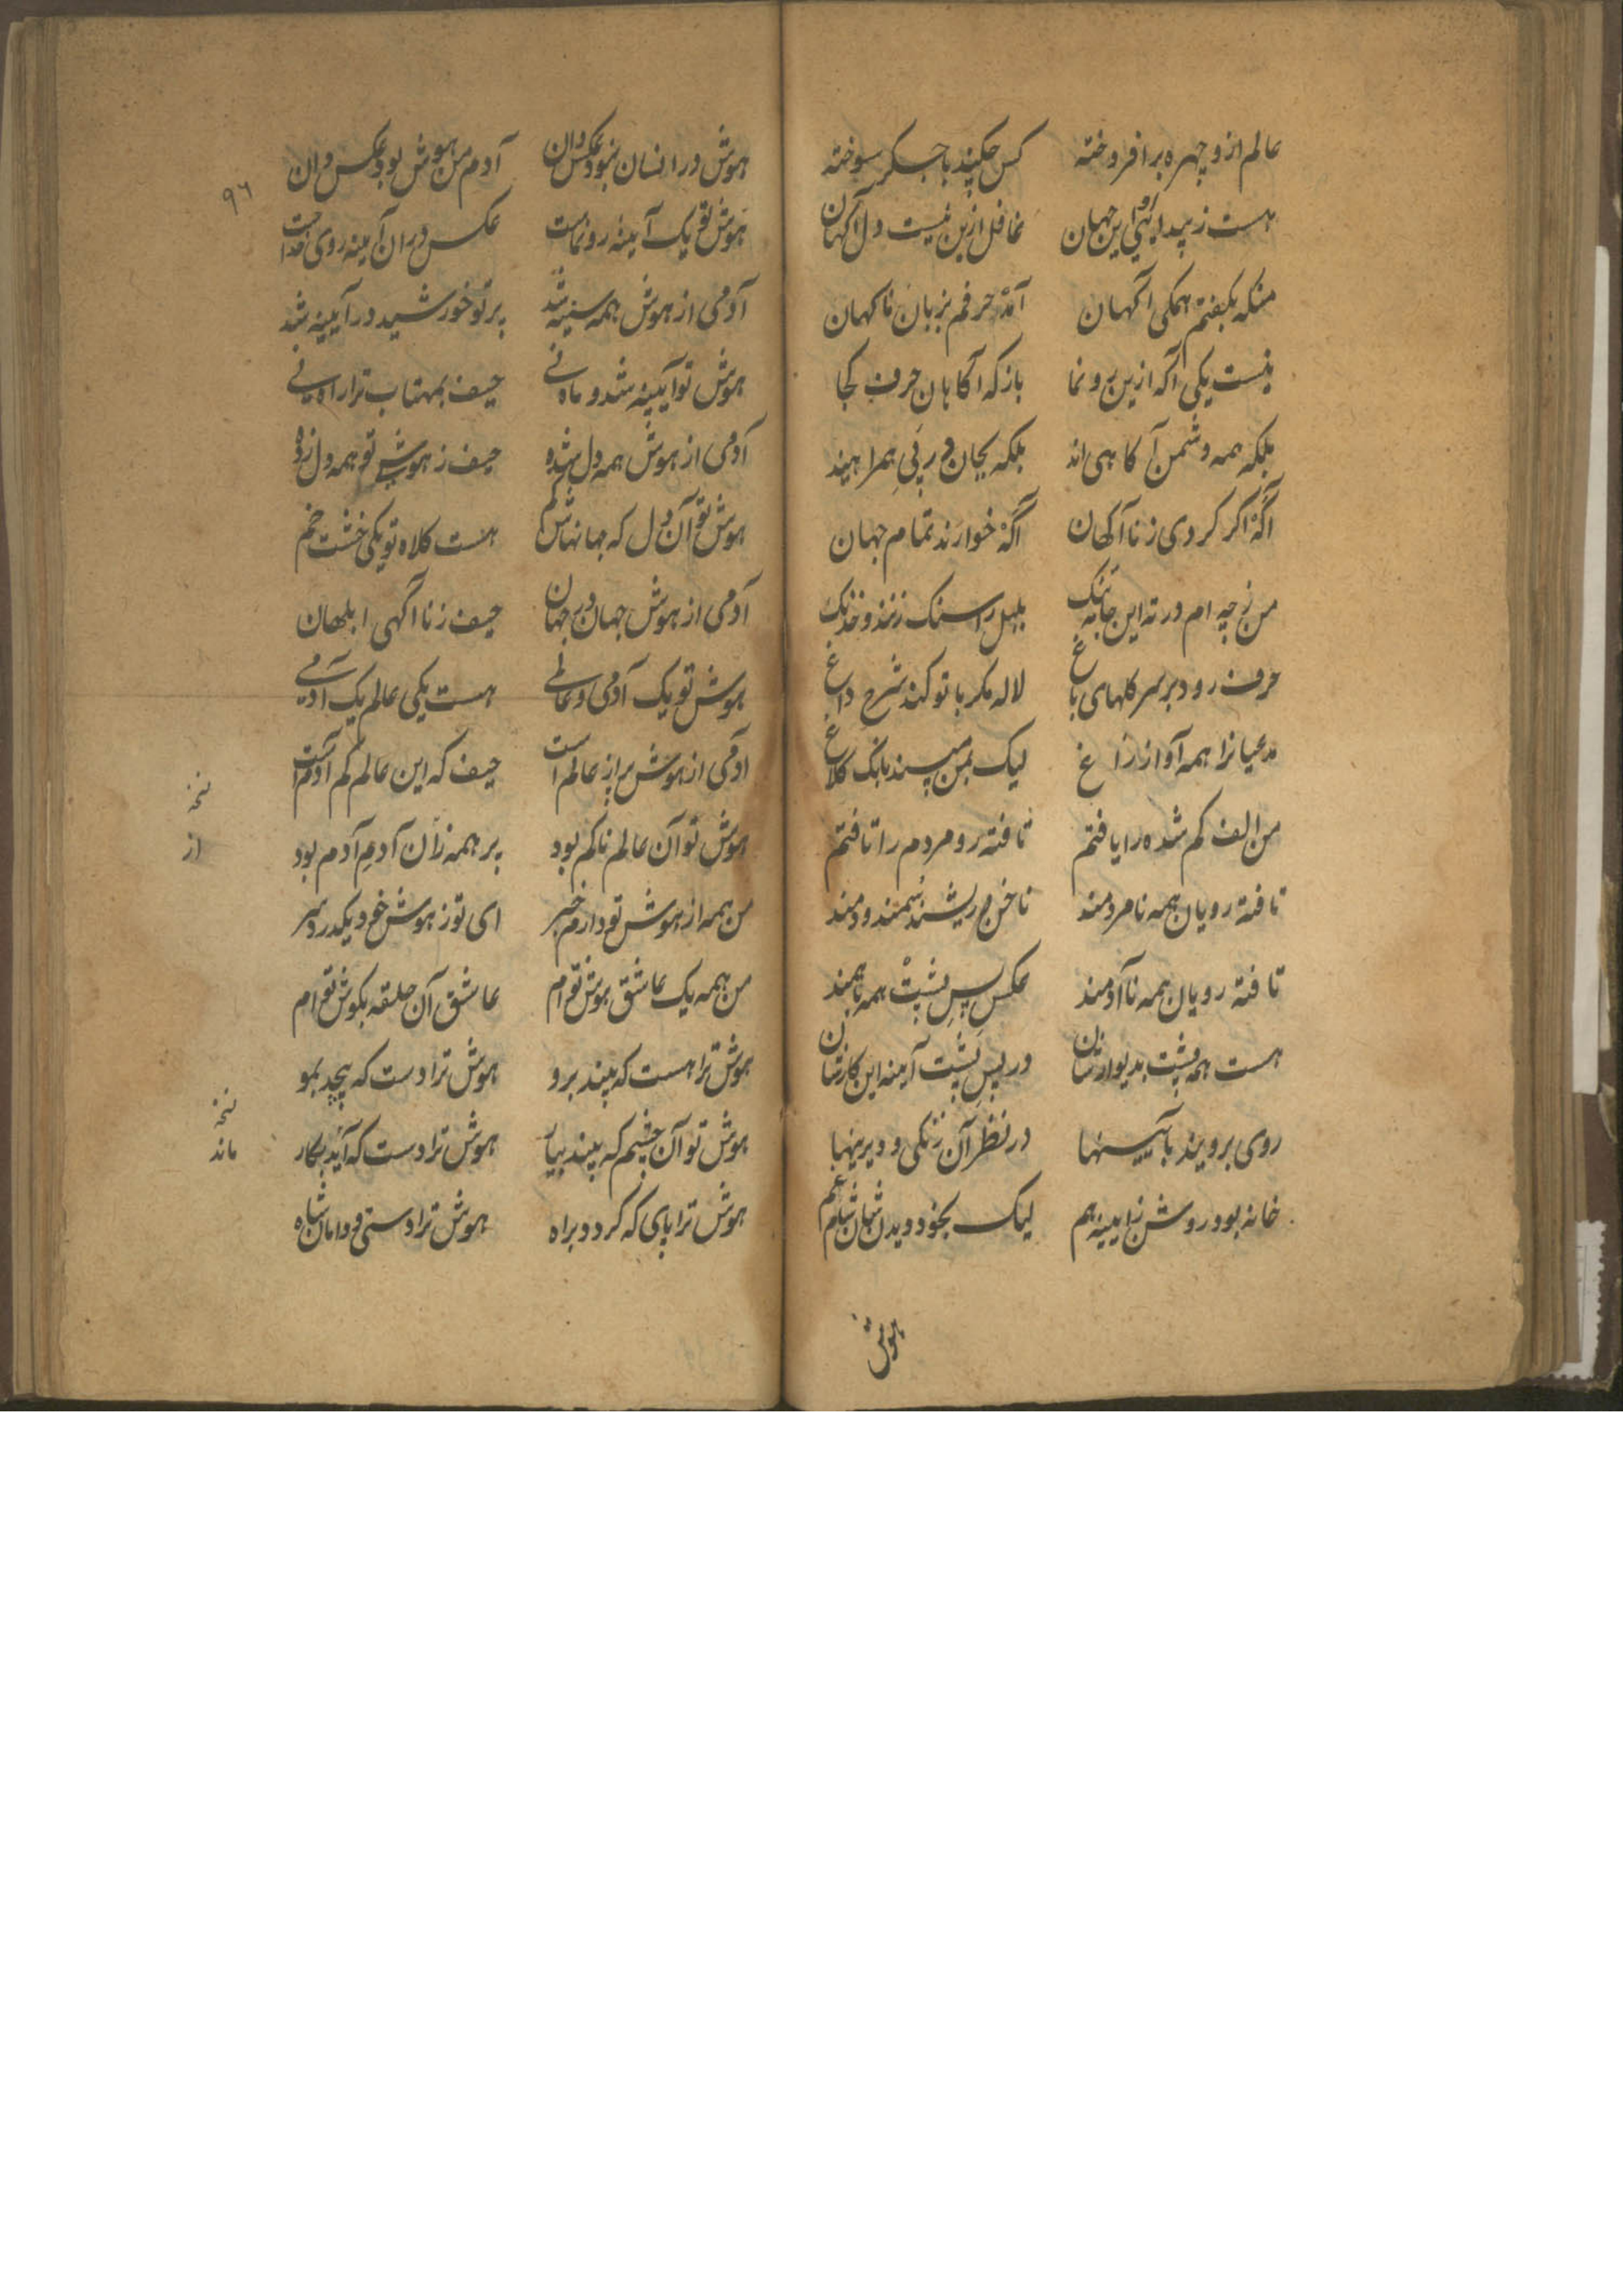 عالم ازو چهره برافروخته کس چکند با جگر سوخته
هست ز پیدائی او این جهان غافل ازین نیست دل آگهان
منکه بگفتم همگی آگهان آمد حرفم بزبان ناگهان
نیست یکی آگه ازین برونما باز که آگاهان حرف کجا
بلکه همه دشمن آگاهی اند بلکه بجان در پیِ همراهیند
آگه اگر کردی ز ناآگهان آگه خوارند تمام جهان
من ز چه ام در ته این بلبل را سنگ زنند و خدنگ
حرف رود بر سر گلهای باغ لاله مگر با تو کند شرح داغ
مدعیانرا همه آواز زاغ لیک بمن پسند بانگ کلاغ
من الف گم شده را یافتم تافته رو مردم را تافتم
تافته رویان همه نامردمند ناخن و ریشند سمند و دمند
تافته رویان همه ناآدمند عکس پسِ پشت همه باهمند
هست همه پشت بدیوارشان در پسِ پشت آینه این کارشان
روی برویند بآیینها در نظر آن زنگی و دیرینها
خانه بود روشن ز آیینه هم لیک بخود دیدن شان شان غم
هوش
۹۶
هوش در انسان نبود عکس دان آدم من هوش بود عکس دان
هوش تو یک آیینه رونماست عکس در آن آیینه روی خداست
آدمی از هوش همه سینه شد پرتو خورشید در آیینه شد
هوش تو آیینه شد و ماه نی حیف بمهتاب ترا راه نی
آدمی از هوش همه دل شده حیف ز هوش تو همه دل زده
هوش تو آن دل که جهانهاش گم هست کلاه تو یکی خشت خم
آدمی از هوش جهان در جهان حیف ز ناآگهی ابلهان
هوش تو یک آدمی و عالمی هست یکی عالم یک آدمی
آدمی از هوش پر از عالم است حیف که این عالم کم آدم است
هوش تو آن عالم ناکم بود بر همه زان آدمِ آدم بود
نسخه
از
من همه از هوش تو دارم خبر ای تو ز هوش خود و یکدر بسر
من همه یک عاشق هوش تو ام عاشق آن حلقه بگوش تو ام
هوش ترا هست که بیند برو هوش ترا دست که پیچد بمو
هوش تو آن چشم که بیند بیار هوش ترا دست که آید بکار
نسخه
ماند
هوش ترا پای که گردد براه هوش ترا دستی و دامان شاه